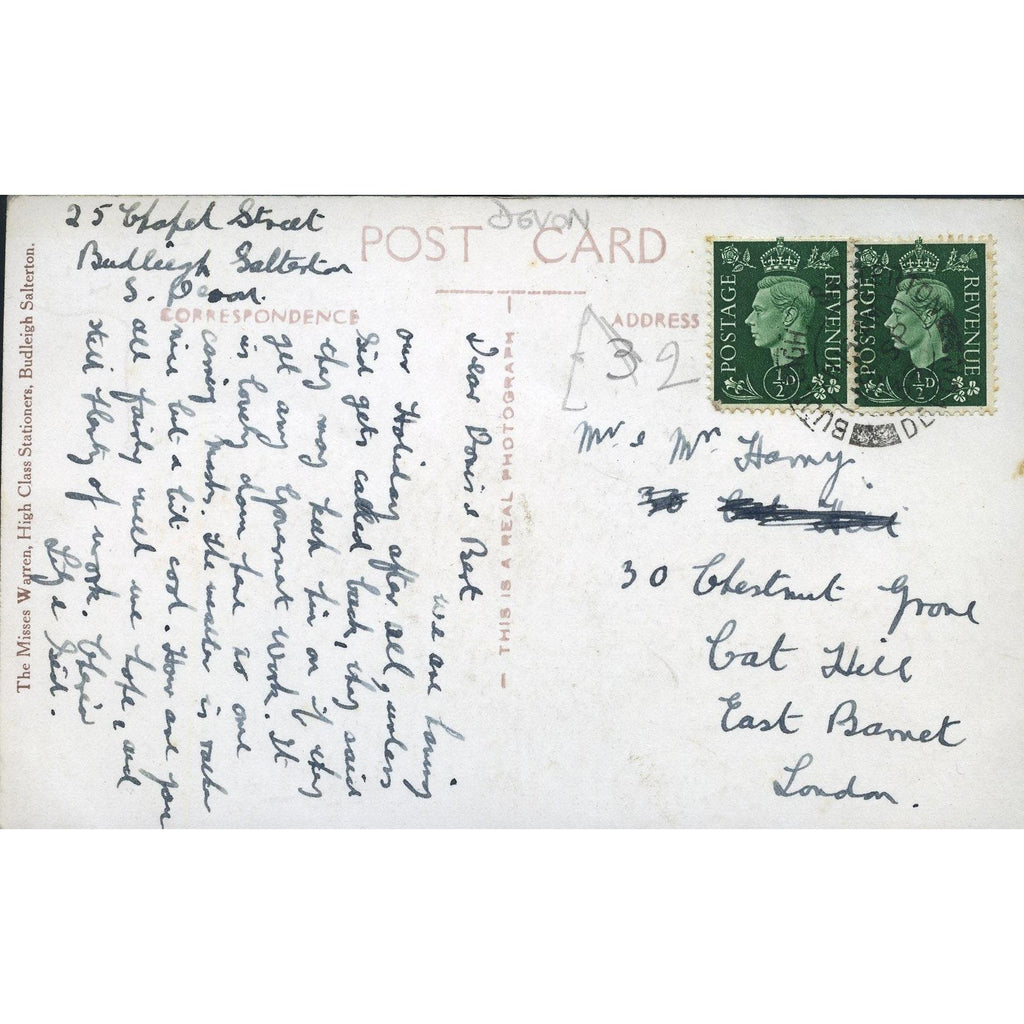 25 Chapel Street
Budleigh Salterton
S. Devon.
DEVON
POST CARD
CORRESPONDENCE
ADDRESS
32
THIS IS A REAL PHOTOGRAPH
The Misses Warren, High Class Stationers, Budleigh Salterton.
Dear Doris & Bert
we are having
our Holiday after all, unless
Sid gets called back, they said
they may keep him on if they
get any Goverment work. It
is lovely down here no one
caring much. the weather is rather
nice but a bit cool. How are you
all fairly well we hope & and
still plenty of work. Cheerio
& Sid.
POSTAGE REVENUE
½D
POSTAGE REVENUE
½D
DEVON
Mr & Mrs
30
30 Chestnut Grove
Cat Hill
East Barnet
London.